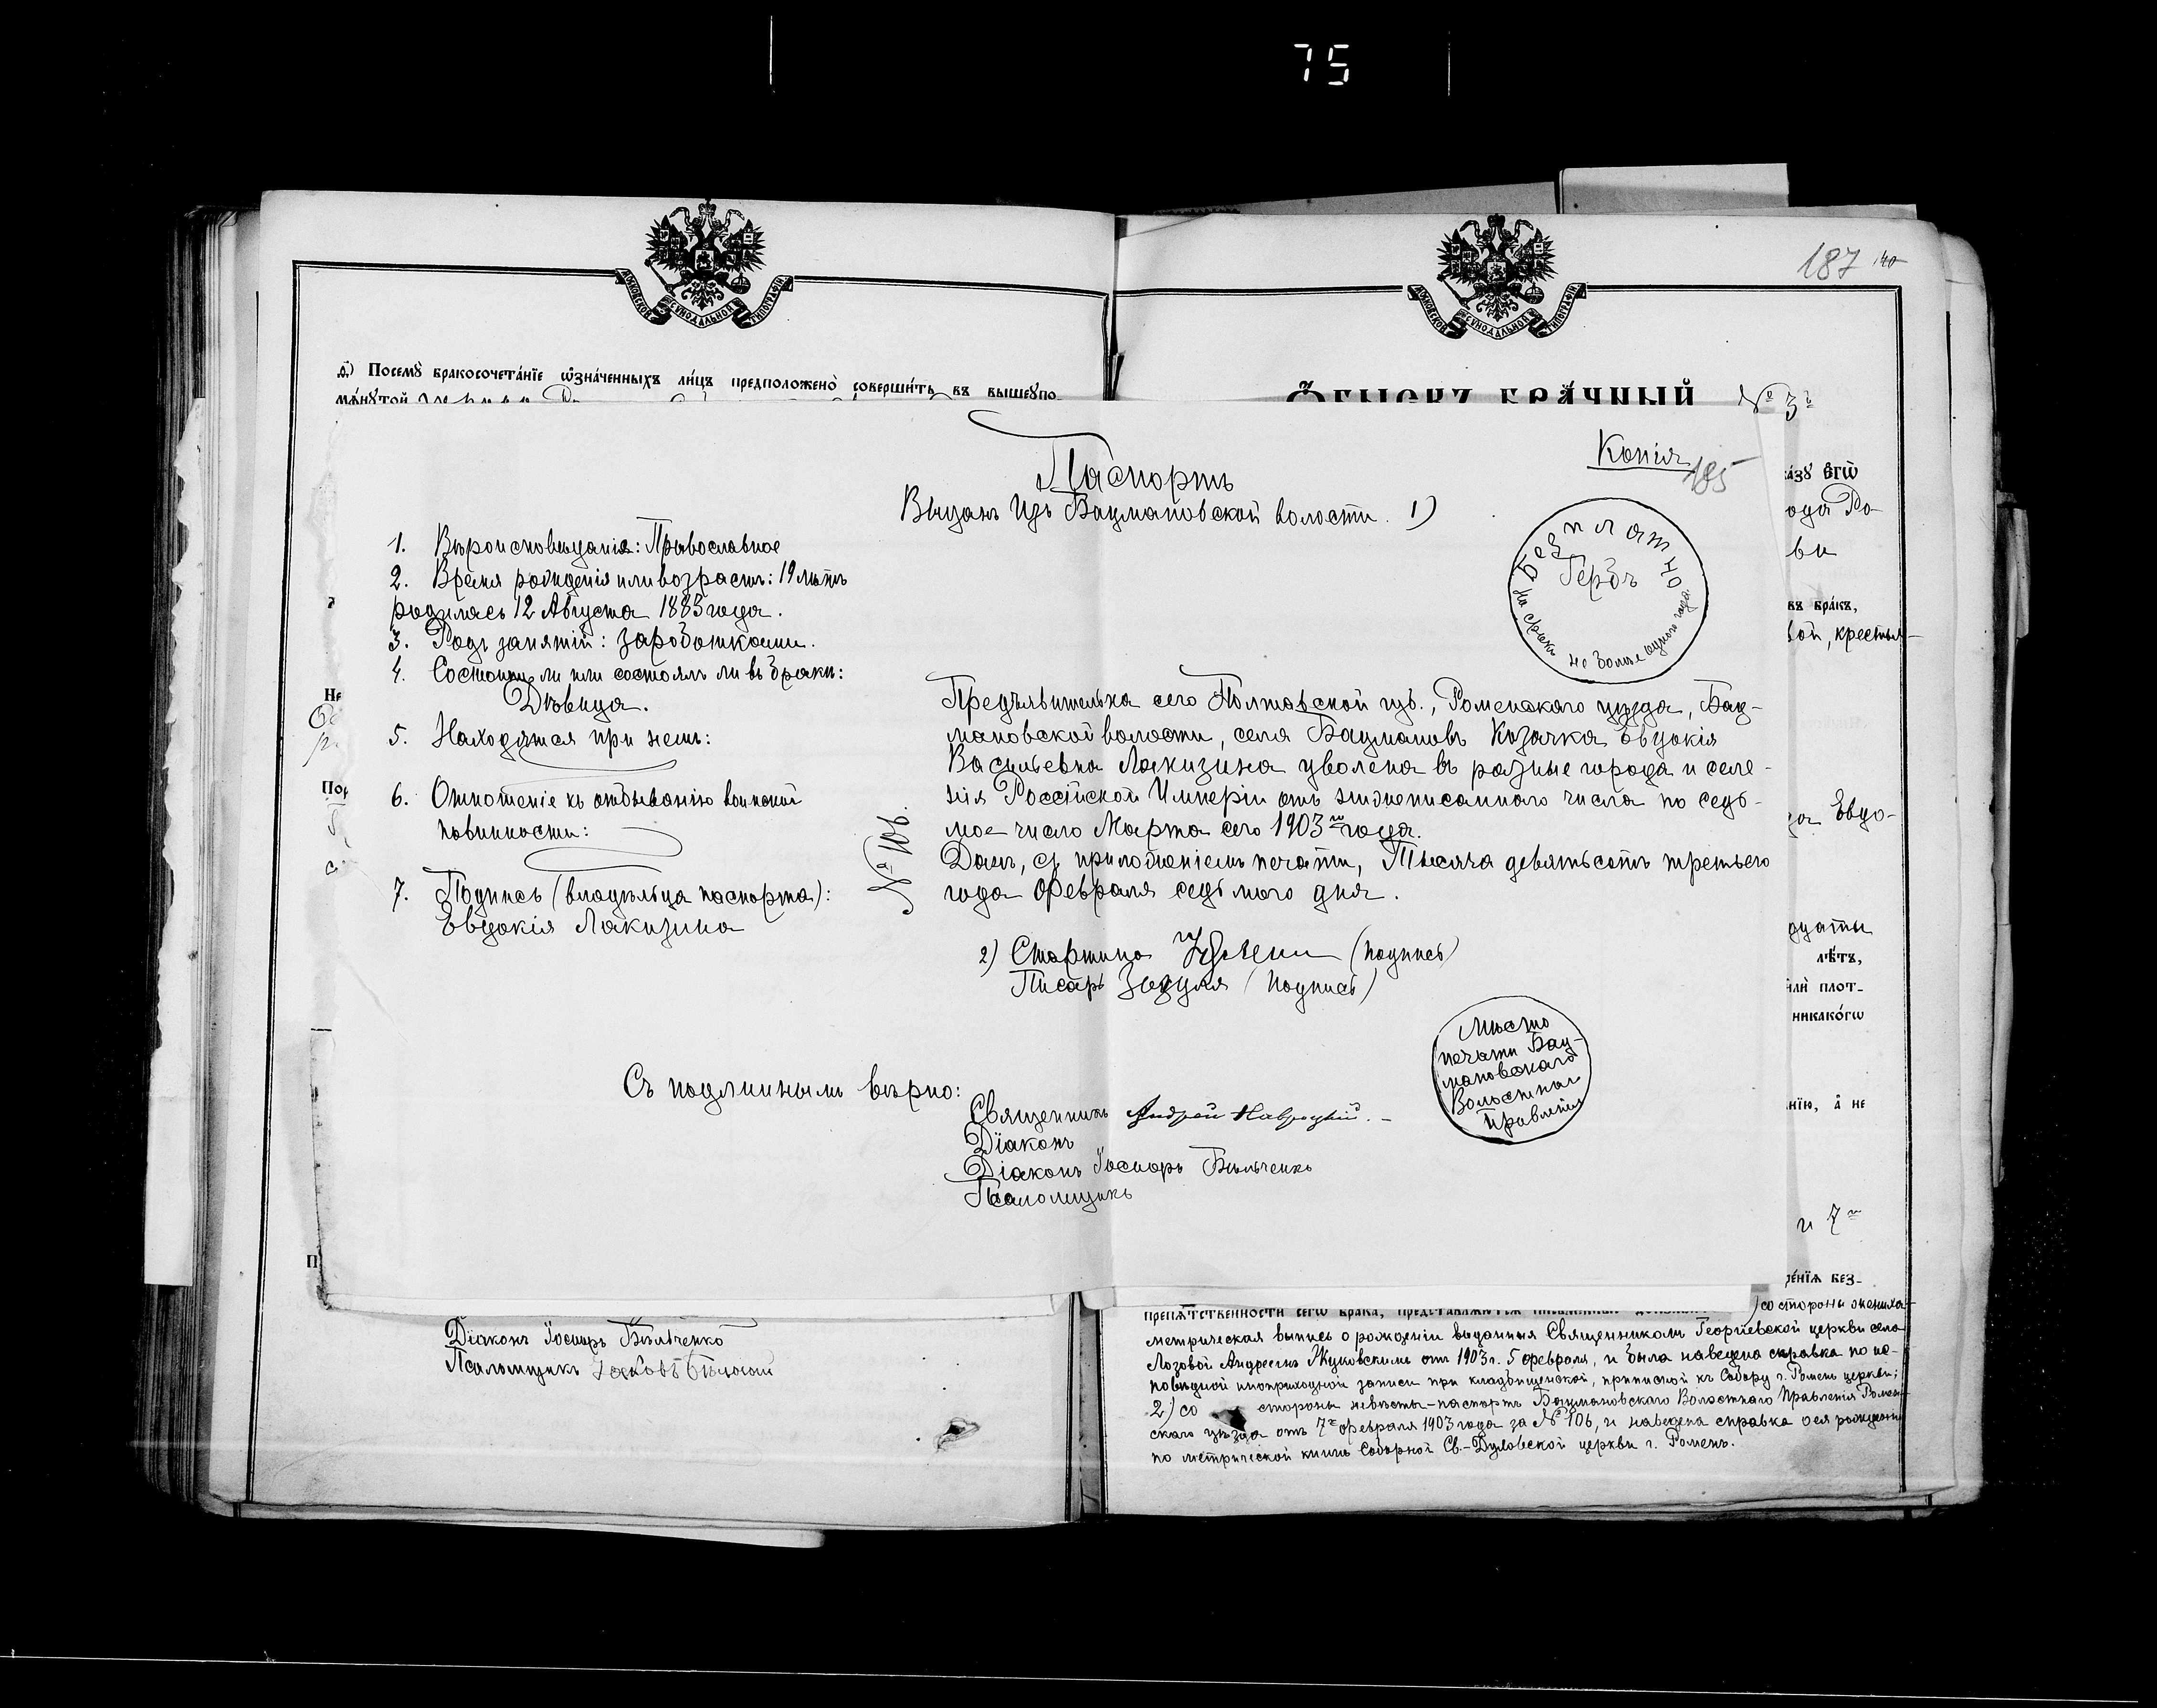 75
МОСКОВСКОЙ СѴНОДАЛЬНОЙ ТИПОГРАФІИ
МОСКОВСКОЙ СѴНОДАЛЬНОЙ ТИПОГРАФІИ
187 140
д҃) Посемꙋ̀ бракосочета́нїе ѡ҆зна́ченныхъ ли́цъ предположено̀ соверши́ть въ вышеꙋпо-
мѧ́нꙋтой
Ѻ҆́БЫСКЪ БРА́ЧНЫЙ № 3й
Копія
185
Паспортъ
Выданъ изъ Бацмановской волости. 1)
Безплатно
Гербъ
На сроки не более одного года
1. Вѣроисповѣданія: Православное
2. Время рожденія или возрастъ: 19 лѣтъ
родилась 12 Августа 1883 года.
3. Родъ занятій: заработками.
4. Состоитъ ли или состоялъ ли въ бракѣ:
Дѣвица.
5. Находятся при немъ:
6. Отношеніе къ отбыванію воинской
повинности:
7. Подпись (владѣльца паспорта):
Евдокія Лакизина
№ 106.
Предъявительна сего Полтавской губ., Роменскаго уѣзда, Бац-
мановской волости, села Бацмановъ Козачка Евдокія
Васильевна Лакизина уволена въ разные города и селе-
нія Россійской Имперіи отъ нижеписаннаго числа по седь-
мое число Марта сего 1903го года.
Данъ, съ приложеніемъ печати, Тысяча девятьсотъ третьего
года Февраля седьмого дня.
2) Старшина (подпись)
Писарь Зозуля (подпись)
Мѣсто
печати Бац-
мановскаго
Волостного
Правленія
Съ подлиннымъ вѣрно:
Священникъ Андрей Навроцкій.
Діаконъ
Діаконъ Іосифъ Бильченко
Псаломщикъ
вгѡ̀
ода Ро-
ви
въ бра́къ,
вой, крестья-
да Евдо-
дцати
лѣ́тъ,
и҆лѝ плот-
никако́гѡ
нїю, а҆ не
и 7го
ре́нїѧ без-
препѧ́тственности сегѡ̀ брака, представлѧютсѧ письменные ) со стороны жениха-
метрическая выпись о рожденіи выданная Священникомъ Георгіевской церкви села
Лозовой Андреемъ Жуковскимъ отъ 1903 г. 5 февраля, и была наведена справка по ис-
повѣдной иноприходной записи при кладбищенской, приписной къ Собору г. Роменъ церкви;
2) со стороны невѣсты-паспортъ Бацмановскаго Волостнаго Правленія Ромен-
скаго уѣзда отъ 7го февраля 1903 года за № 106, и наведена справка о ея рожденіи
по метрической книгѣ Соборной Св.-Духовской церкви г. Роменъ.
Діаконъ Іосифъ Бильченко
Псаломщикъ